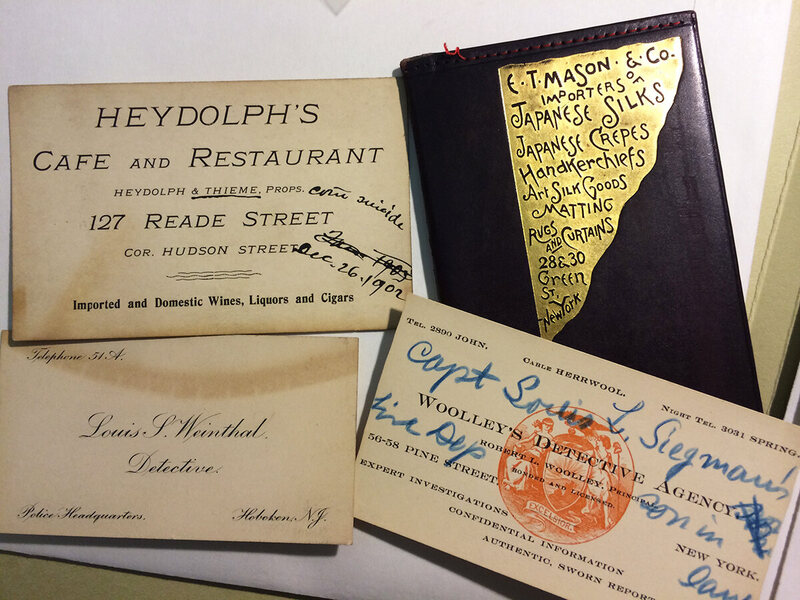 HEYDOLPH'S
CAFE AND RESTAURANT
HEYDOLPH & THIEME, PROPS. com suicide
127 READE STREET
COR. HUDSON STREET
Dec. 26. 1902
Imported and Domestic Wines, Liquors and Cigars
E. T. MASON & Co.
IMPORTERS OF
JAPANESE SILKS
JAPANESE CREPES
Handkerchiefs
Art SILK GOODS
MATTING
RUGS AND CURTAINS
28 & 30
Green
ST.
New York
Telephone 51 A.
Louis S. Weinthal.
Detective.
Police Headquarters.
Hoboken, N.J.
TEL. 2890 JOHN.
CABLE HERRWOOL.
NIGHT TEL. 3031 SPRING.
Capt Louis L. Siegman's
son in
law
Fire Dep
WOOLLEY'S DETECTIVE AGENCY
ROBERT L. WOOLLEY, PRINCIPAL
BONDED AND LICENSED.
56-58 PINE STREET,
NEW YORK.
EXPERT INVESTIGATIONS
CONFIDENTIAL INFORMATION
AUTHENTIC, SWORN REPORT
EXCELSIOR